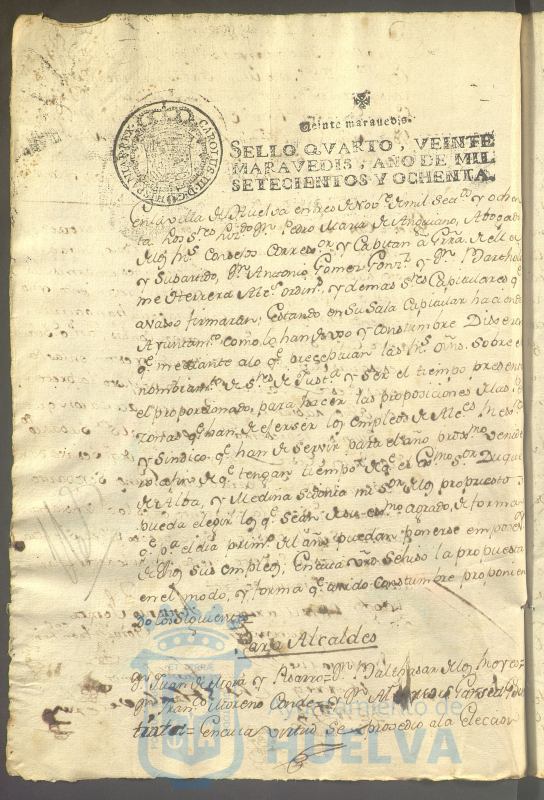 Veinte maravedis.
SELLO QVARTO, VEINTE
MARAVEDIS, AÑO DE MIL
SETECIENTOS Y OCHENTA.
CAROLUS III D G HISP REX
En la villa de Huelva en tres de Nov.e de mil Setz.os y ochen
ta. Los S.res Pedro Maria de Anquiano, Abogado
de los R.s Consejos Correg.or y Capitan a Grra. de ella
y su partido, D.n Antonio Gomez D.n Bartholo
me Herrera Alc.s ordin.s y demas S.res Capitulares q.e
avaxo firmaran, Estando en su Sala Capitular haciendo
Ayuntam.to como lo han de uso y constumbre Dixeron
q.e mediante a lo q.e las R.s sobre el
nombram.to de S.res de Just.a y ser el tiempo presente
el proporcionado, para hacer las proposiciones de las
q.e han de exerser los empleos de Alc.es
y Sindico q.e han de servir para el año prox.mo venide
ro a fin de q.e tengan tiempo de q.e el Ex.mo S.or Duque
de Alba, y Medina Sidonia mi S.or de los propuestos
pueda elegir los q.e sean de su agrado, de forma
q.e p.a el dia prim.o del año puedan ponerse en poses.n
de d.hos sus empleos, En cuia se hiso la propuesta
en el modo, y forma q.e a sido constumbre proponien
do los siguientes
Para Alcaldes
D.n Juan de Mora y Pisarro = D.n Balthasar de los Reyes =
D.n Fran.co Moreno Conde = D.n
En cuia virtud se provedio a la eleccion
Ayuntamiento de
HUELVA